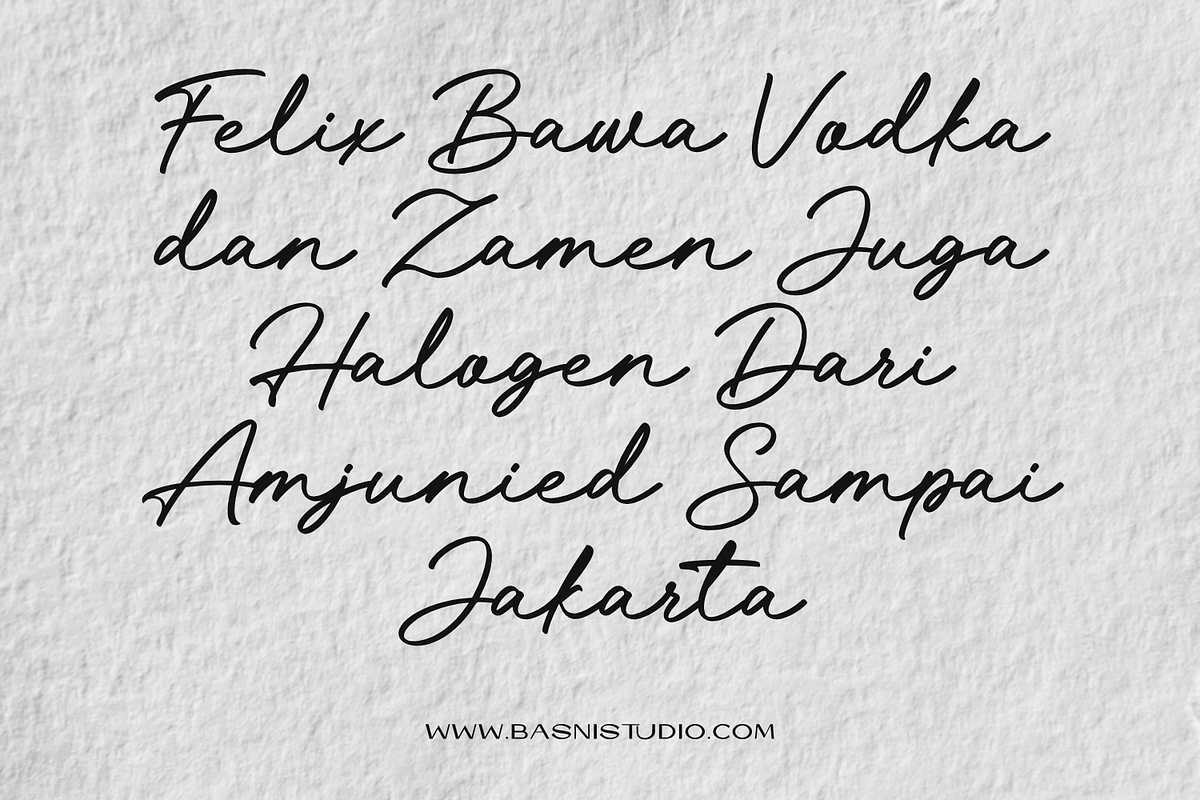 Felix Bawa Vodka
dan Zamen Juga
Halogen Dari
Amjunied Sampai
Jakarta
WWW.BASNISTUDIO.COM